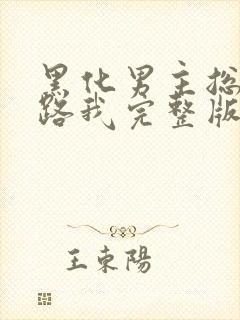 黑化男主总
路我完整版
王東陽